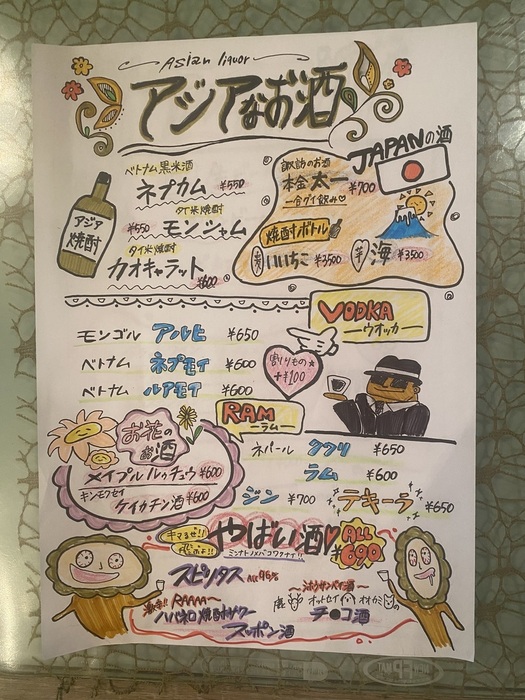 Asian liquor
アジアなお酒
ベトナム黒米酒
ネプカム ¥550
タイ米焼酎
¥550 モンシャム
タイ米焼酎
カオキャラット ¥600
アジア
焼酎
JAPANの酒
諏訪のお酒
本金 太一 ¥700
一合グイ飲み♡
焼酎ボトル
麦 いいちこ ¥3500
芋 海 ¥3500
VODKA
ーウオッカー
モンゴル アルヒ ¥650
ベトナム ネプモイ ¥600
ベトナム ルアモイ ¥600
割りもの
+¥100
RAM
ーラムー
ネパール ククリ ¥650
ラム ¥600
ジン ¥700
テキーラ ¥650
お花の
お酒
メイプルルゥチュウ ¥600
キンモクセイ
ケイカチン酒 ¥600
キマるぜ!!
やばい酒
ALL
¥690
スピリタス Alc96%
激辛!! RAAA〜
ハバネロ焼酎サワー
スッポン酒
オットセイ オオカミの
チョコ酒